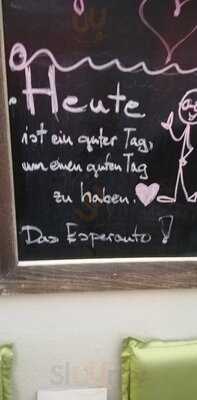 Heute
ist ein guter Tag,
um einen guten Tag
zu haben.
Das Esperanto!